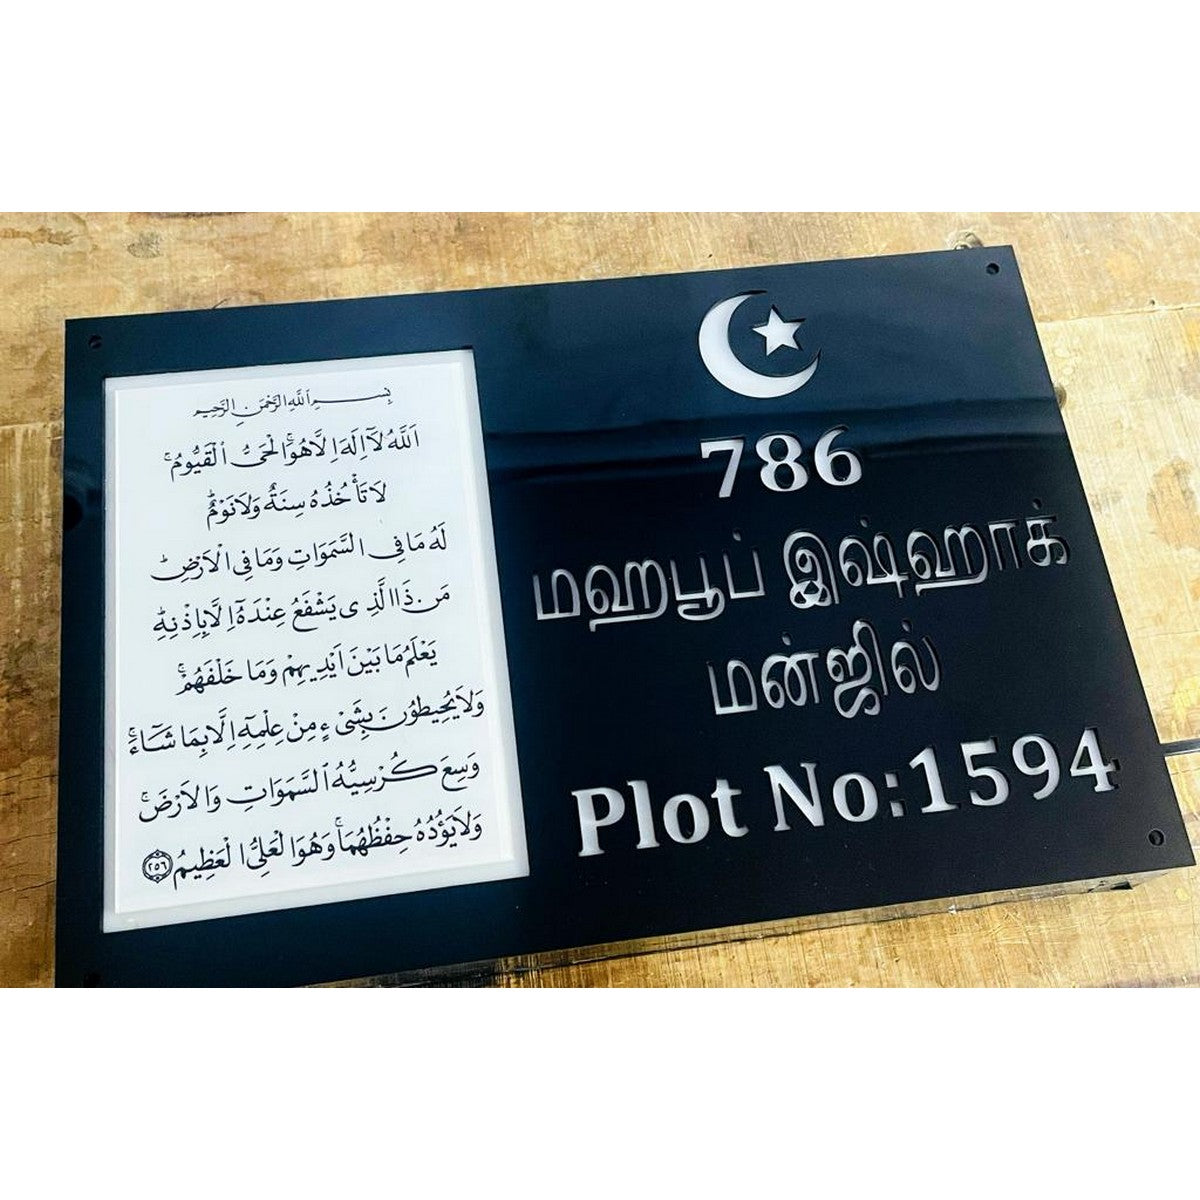 بِسْمِ اللَّهِ الرَّحْمَنِ الرَّحِيمِ
اَللَّهُ لَآ اِلَهَ اِلَّا هُوَ ۚ الْحَىُّ الْقَيُّومُ ۚ
لَا تَأْخُذُهُ سِنَةٌ وَلَا نَوْمٌ ؕ
لَهُ مَا فِى السَّمَوَاتِ وَمَا فِى الْاَرْضِ ؕ
مَنْ ذَا الَّذِى يَشْفَعُ عِنْدَهُٓ اِلَّا بِاِذْنِهِ ؕ
يَعْلَمُ مَا بَيْنَ اَيْدِيهِمْ وَمَا خَلْفَهُمْ ۚ
وَلَا يُحِيطُونَ بِشَىْءٍ مِنْ عِلْمِهِٓ اِلَّا بِمَا شَآءَ ۚ
وَسِعَ كُرْسِيُّهُ السَّمَوَاتِ وَالْاَرْضَ ۚ
وَلَا يَؤُدُهُ حِفْظُهُمَا ۚ وَهُوَ الْعَلِىُّ الْعَظِيمُ ٢٥٦
786
மஹபூப் இஷ்ஹாக்
மன்ஜில்
Plot No:1594